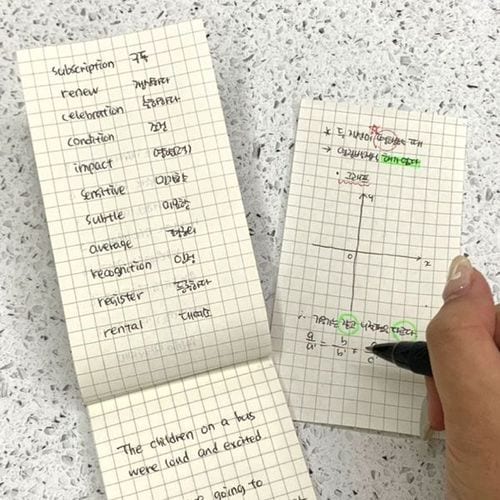 subscription 구독
renew 갱신하다
celebration 축하하다
condition 조건
impact 영향(력)
sensitive 민감한
subtle 미묘한
average 평균의
recognition 인정
register 등록하다
rental 대여료
The children on a bus
were loud and excited.
going to
* 두 직선이 평행할 때
→ 연립방정식 해가 없다
• 그래프
y
O
x
기울기는 같고 y절편은 다르다
a/a' = b/b' ≠